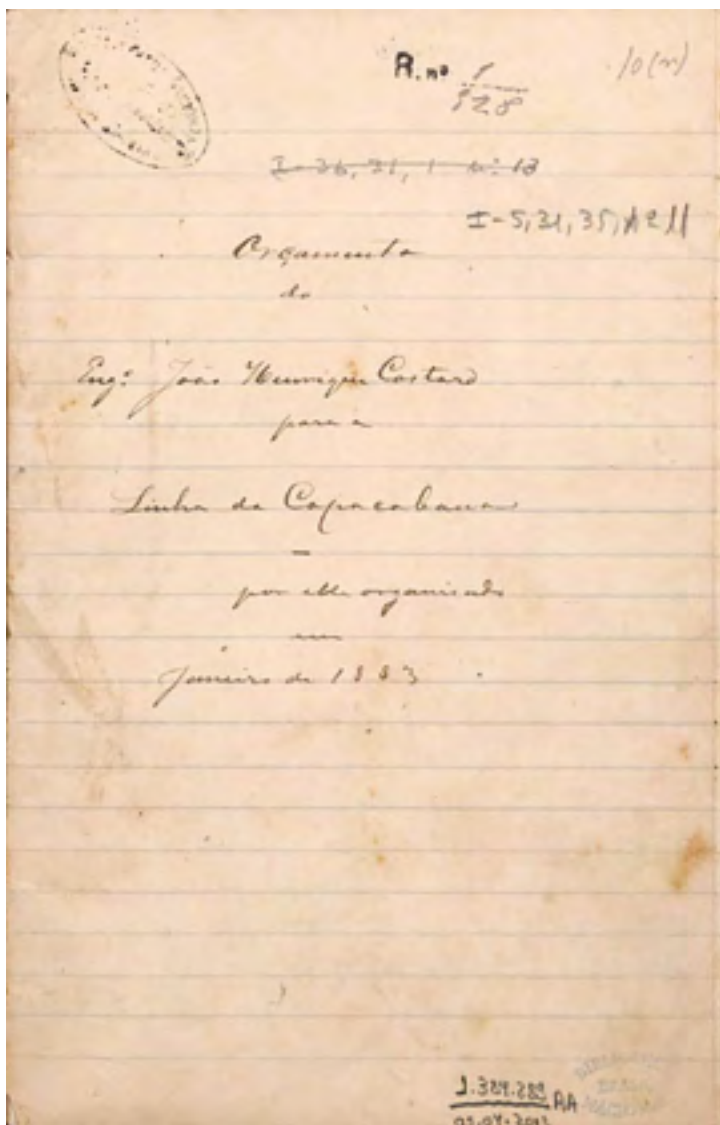 R. nº 1
928
10(n)
I-36, 31, 1 nº 13
I-5, 31, 35, nº 11
Orçamento
do
Engº João Henrique Costard
para a
Linha da Copacabana
—
por elle organisado
em
Janeiro de 1883
1.384.289 AA
BIBLIOTECA
NACIONAL